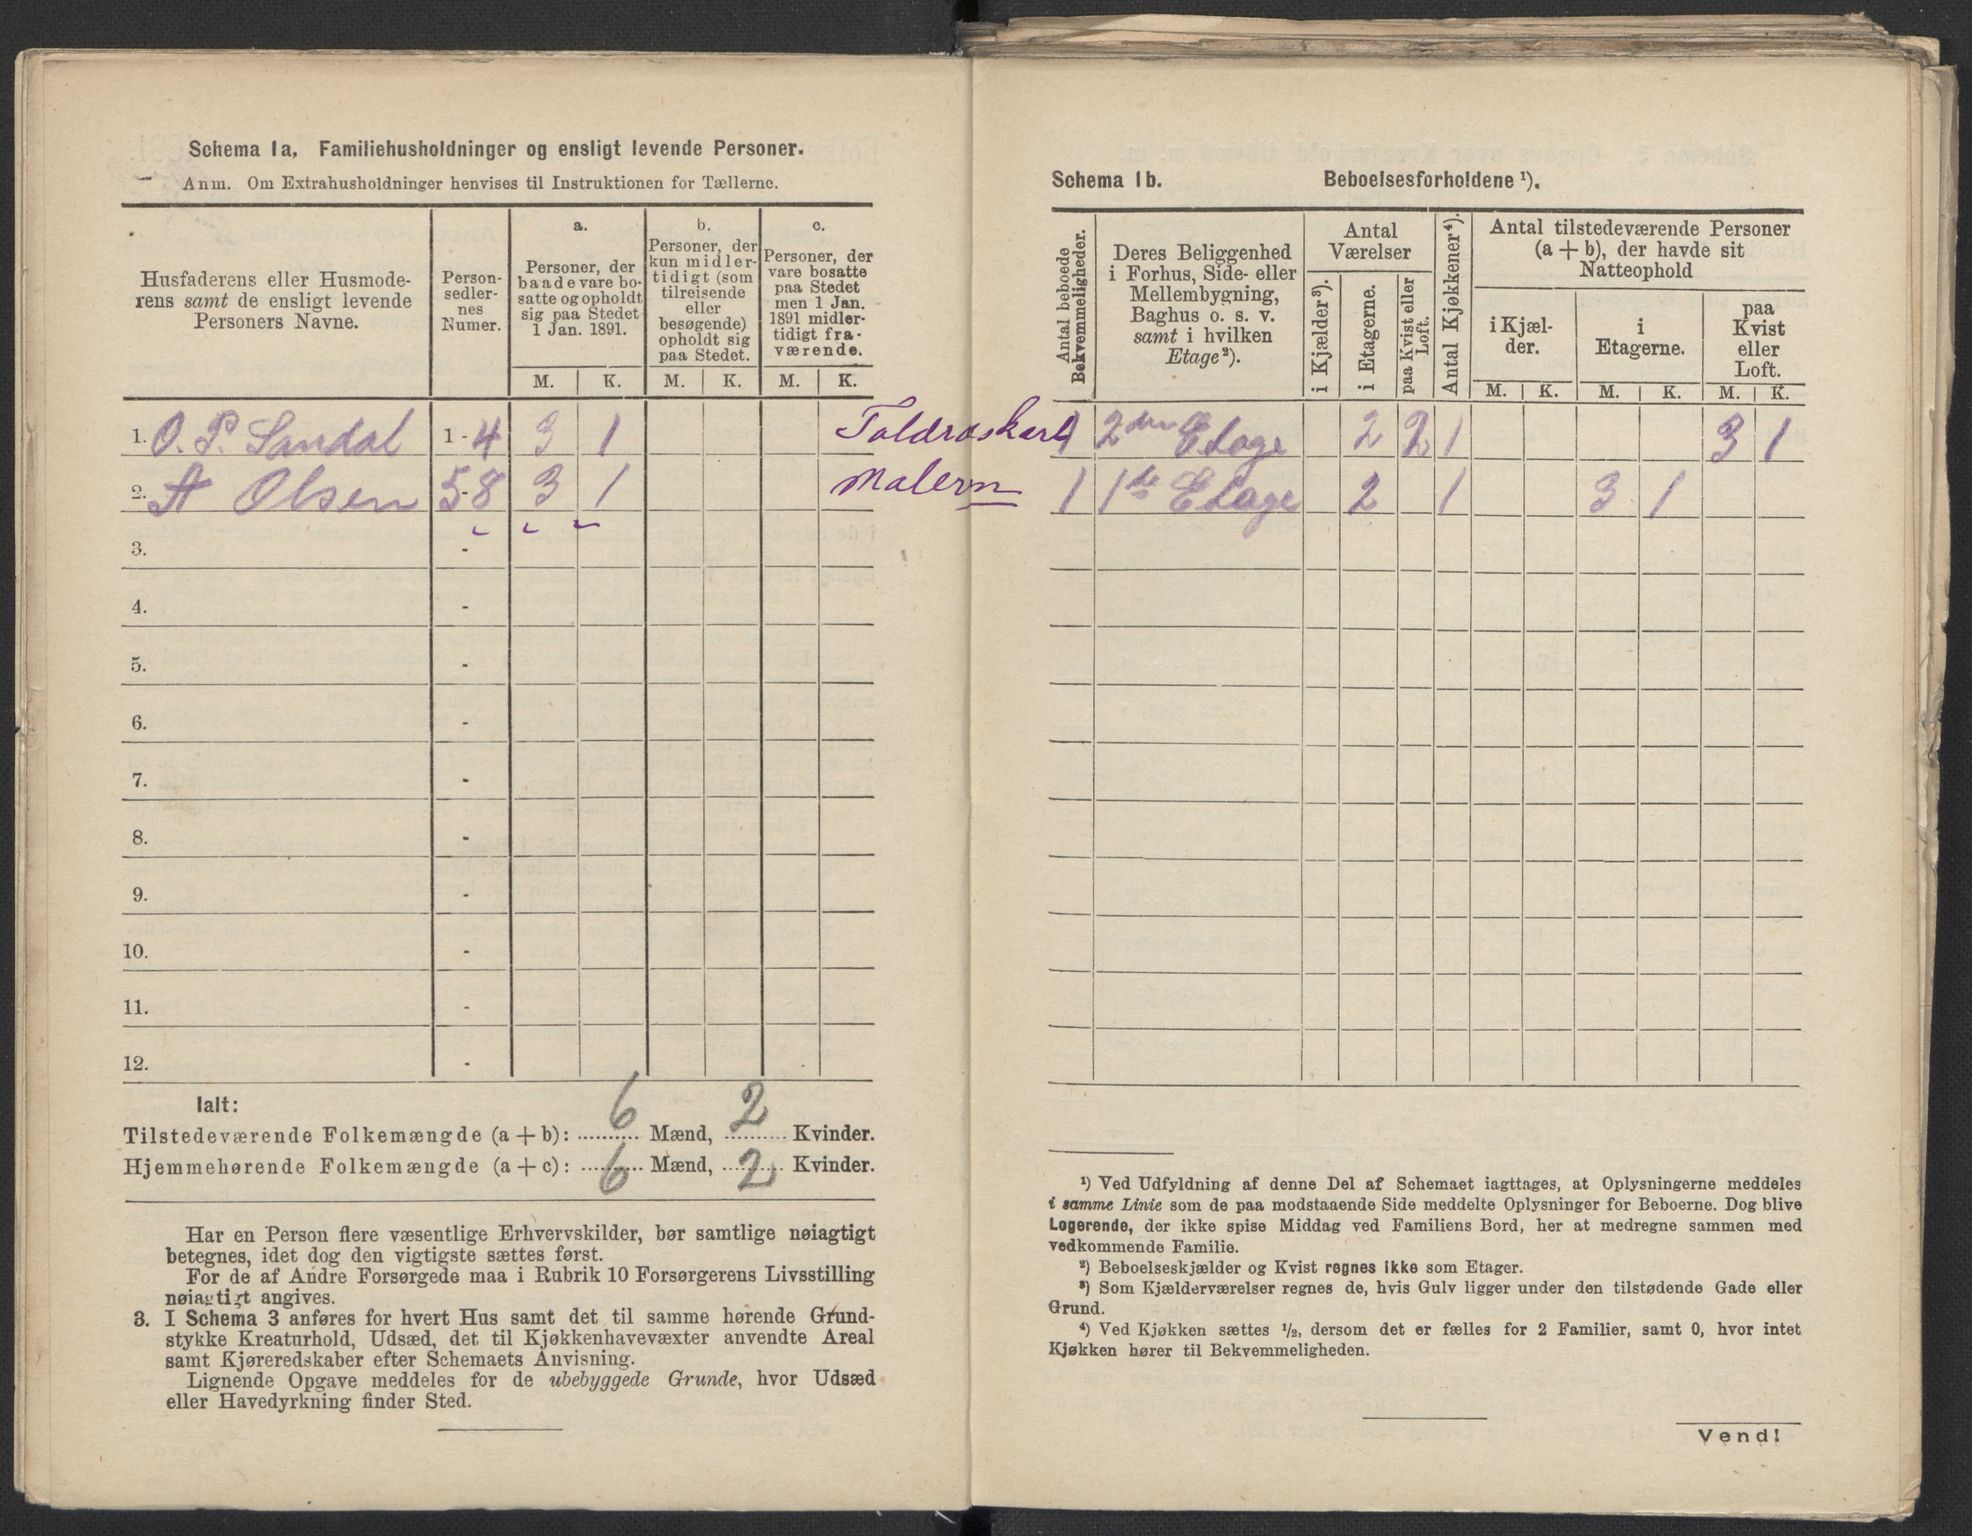 Schema 1a. Familiehusholdninger og ensligt levende Personer.
Anm. Om Extrahusholdninger henvises til Instruktionen for Tællerne.
Husfaderens eller Husmode-
rens samt de ensligt levende
Personers Navne.
Person-
sedler-
nes
Numer.
a.
Personer, der
baade vare bo-
satte og opholdt
sig paa Stedet
1 Jan. 1891.
b.
Personer, der
kun midler-
tidigt (som
tilreisende
eller
besøgende)
opholdt sig
paa Stedet.
c.
Personer, der
vare bosatte
paa Stedet
men 1 Jan.
1891 midler-
tidigt fra-
værende.
M. K. M. K. M. K.
1. O. P. Sandal 1-4 3 1
2. A Olsen 5-8 3 1
3. -
4. -
5. -
6. -
7. -
8. -
9. -
10. -
11. -
12. -
Ialt:
Tilstedeværende Folkemængde (a + b): 6 Mænd, 2 Kvinder.
Hjemmehørende Folkemængde (a + c): 6 Mænd, 2 Kvinder.
Har en Person flere væsentlige Erhvervskilder, bør samtlige nøiagtigt
betegnes, idet dog den vigtigste sættes først.
For de af Andre Forsørgede maa i Rubrik 10 Forsørgerens Livsstilling
nøiagtigt angives.
3. I Schema 3 anføres for hvert Hus samt det til samme hørende Grund-
stykke Kreaturhold, Udsæd, det til Kjøkkenhavevæxter anvendte Areal
samt Kjøreredskaber efter Schemaets Anvisning.
Lignende Opgave meddeles for de ubebyggede Grunde, hvor Udsæd
eller Havedyrkning finder Sted.
Schema 1b. Beboelsesforholdene ¹).
Antal beboede
Bekvemmeligheder.
Deres Beliggenhed
i Forhus, Side- eller
Mellembygning,
Baghus o. s. v.
samt i hvilken
Etage²).
Antal
Værelser
i Kjælder³).
i Etagerne.
paa Kvist eller
Loft.
Antal Kjøkkener⁴).
Antal tilstedeværende Personer
(a + b), der havde sit
Natteophold
i Kjæl-
der.
i
Etagerne.
paa
Kvist
eller
Loft.
M. K. M. K. M. K.
Toldroskarl 1 2den Etage 2 2 1 3 1
Malersv 1 1te Etage 2 1 3 1
¹) Ved Udfyldning af denne Del af Schemaet iagttages, at Oplysningerne meddeles
i samme Linie som de paa modstaaende Side meddelte Oplysninger for Beboerne. Dog blive
Logerende, der ikke spise Middag ved Familiens Bord, her at medregne sammen med
vedkommende Familie.
²) Beboelseskjælder og Kvist regnes ikke som Etager.
³) Som Kjælderværelser regnes de, hvis Gulv ligger under den tilstødende Gade eller
Grund.
⁴) Ved Kjøkken sættes ½, dersom det er fælles for 2 Familier, samt 0, hvor intet
Kjøkken hører til Bekvemmeligheden.
Vend!